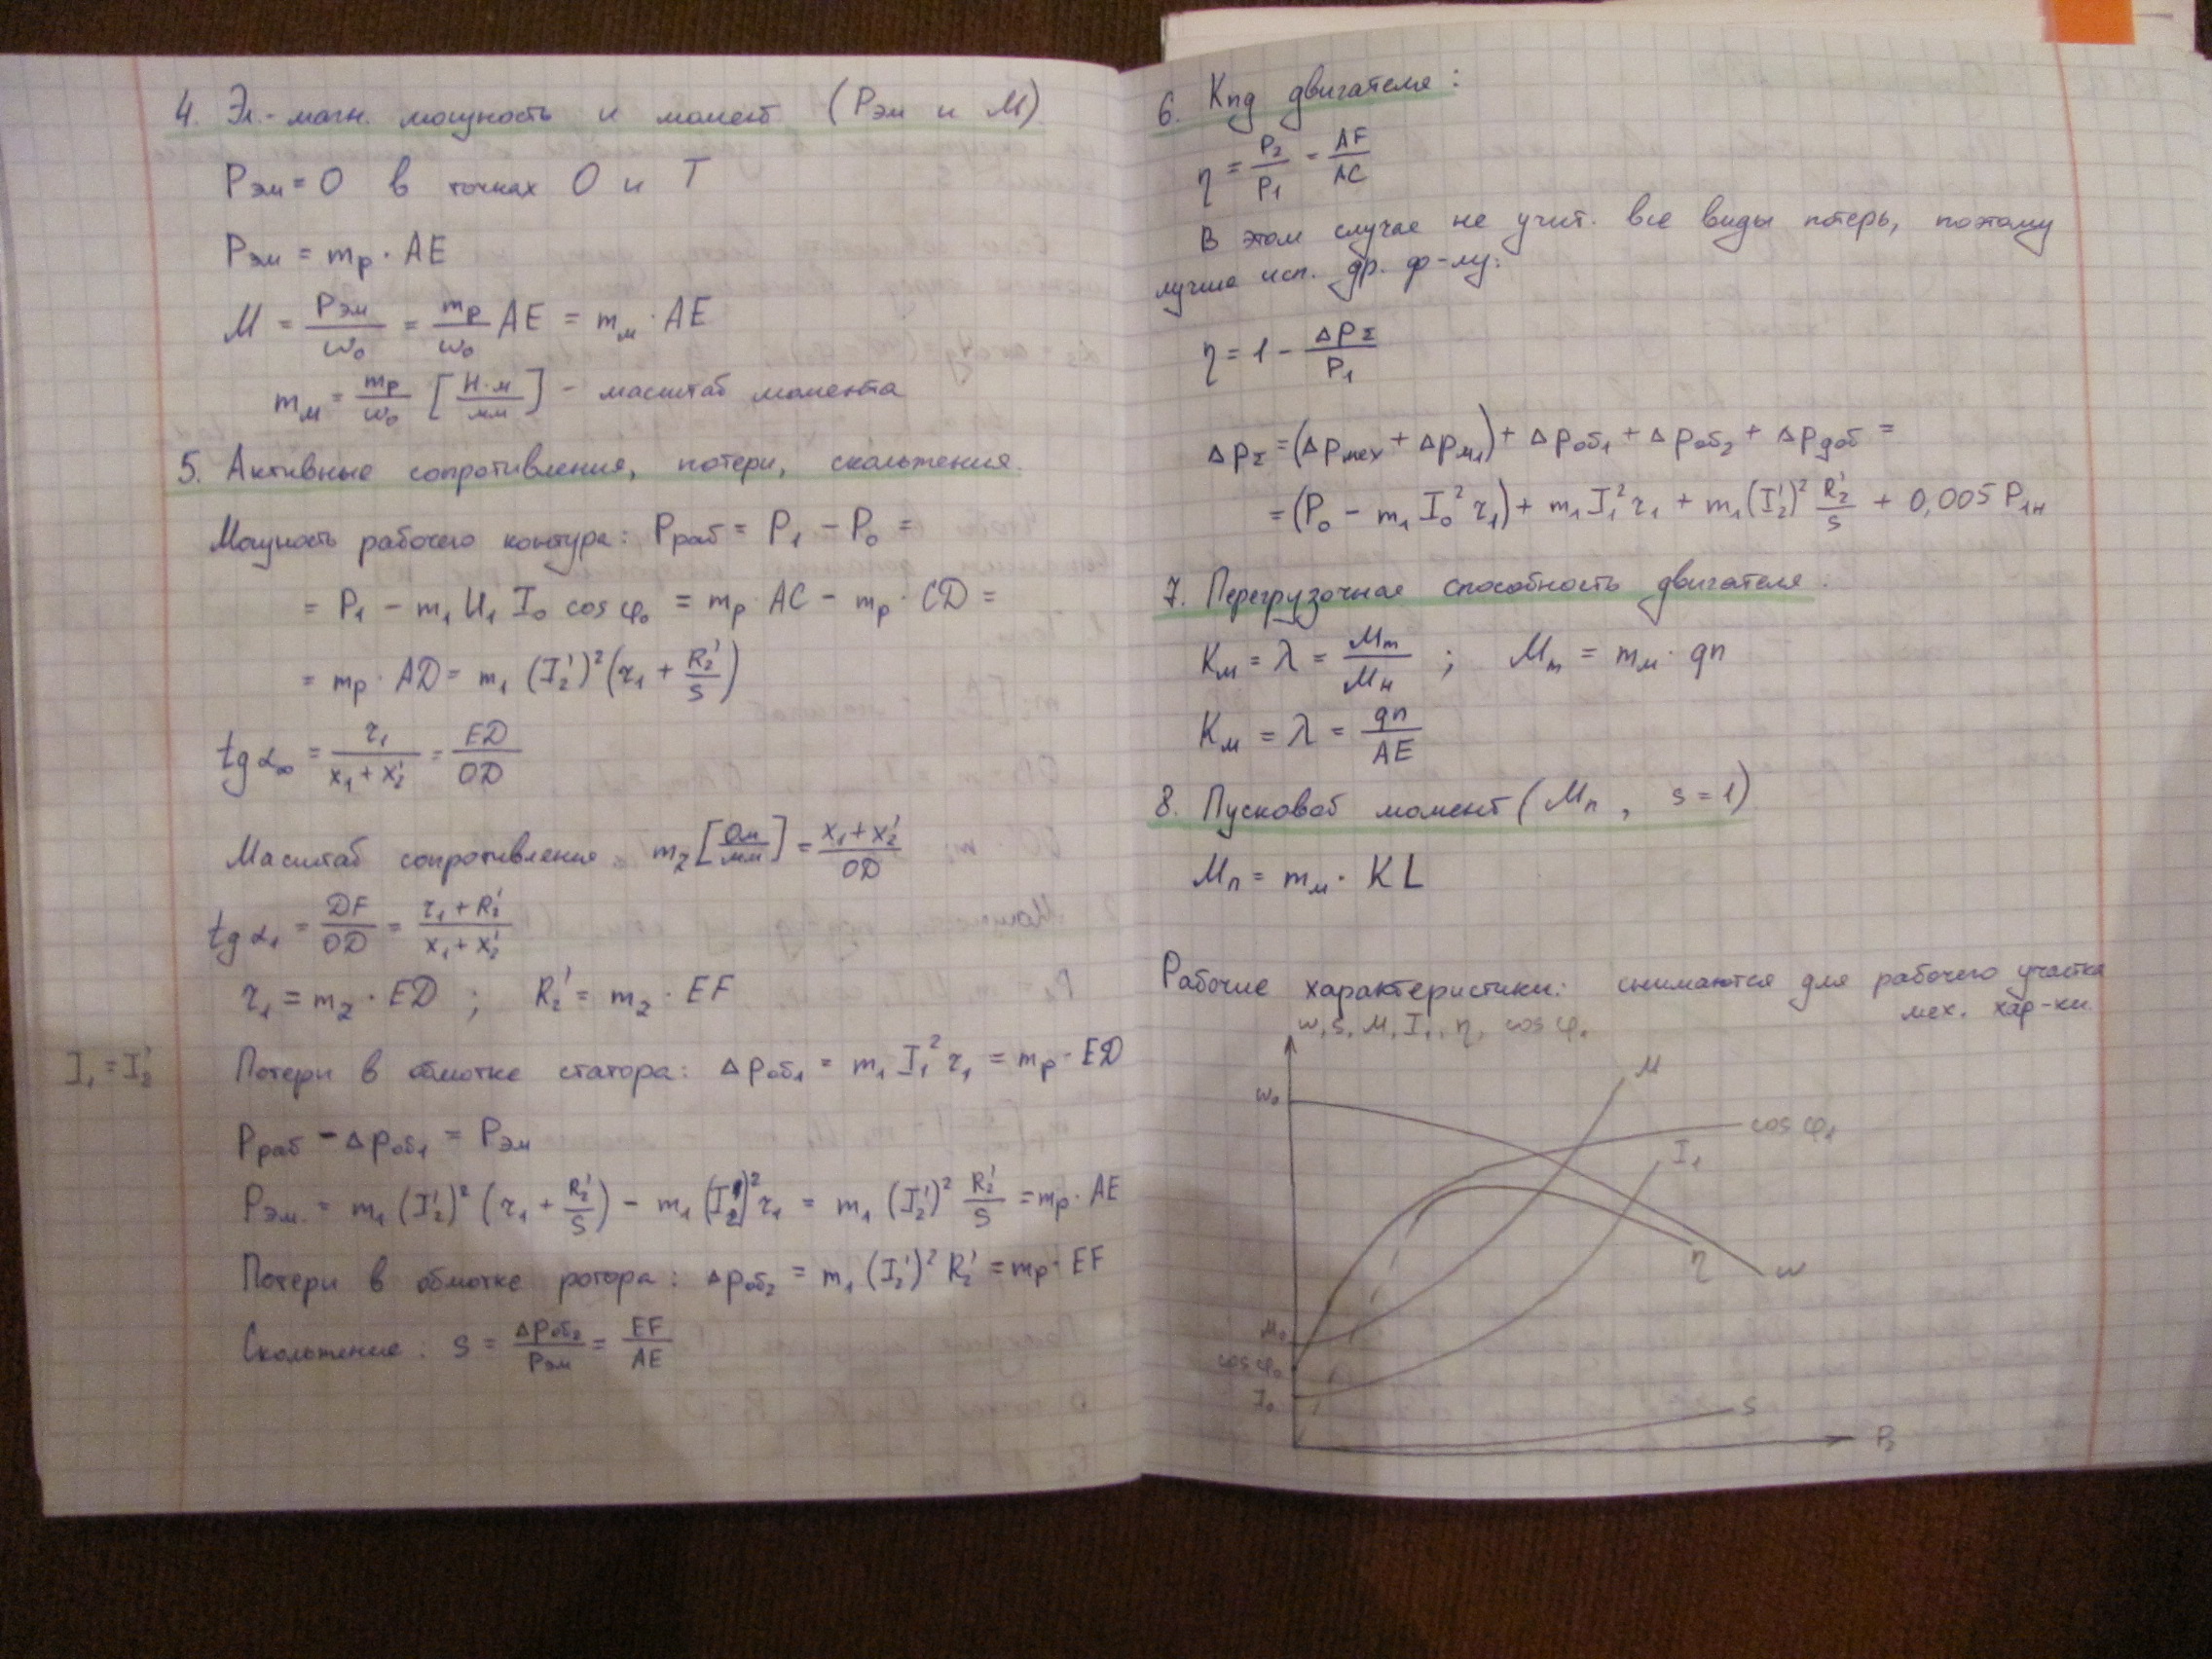 4. Эл.-магн. мощность и момент (Pэм и M)
Pэм = 0 в точках O и T
Pэм = mp · AE
M = Pэм/ω₀ = mp/ω₀ AE = mм · AE
mм = mp/ω₀ [Н·м/мм] - масштаб момента
5. Активные сопротивления, потери, скольжения.
Мощность рабочего контура: Pраб = P₁ - P₀ =
= P₁ - m₁ U₁ I₀ cos φ₀ = mp · AC - mp · CD =
= mp · AD = m₁ (I₂')² (r₁ + R₂'/s)
tg α∞ = r₁/(x₁ + x₂') = ED/OD
Масштаб сопротивления mz [Ом/мм] = (x₁ + x₂')/OD
tg α₁ = DF/OD = (r₁ + R₂')/(x₁ + x₂')
r₁ = mz · ED ; R₂' = mz · EF
I₁ = I₂'
Потери в обмотке статора: Δpоб₁ = m₁ I₁² r₁ = mp · ED
Pраб - Δpоб₁ = Pэм
Pэм. = m₁ (I₂')² (r₁ + R₂'/s) - m₁ (I₂')² r₁ = m₁ (I₂')² R₂'/s = mp · AE
Потери в обмотке ротора: Δpоб₂ = m₁ (I₂')² R₂' = mp · EF
Скольжение: s = Δpоб₂/Pэм = EF/AE
6. Кпд двигателя:
η = P₂/P₁ = AF/AC
В этом случае не учит. все виды потерь, поэтому
лучше исп. др. ф-лу:
η = 1 - ΔpΣ/P₁
ΔpΣ = (Δpмех + Δpм₁) + Δpоб₁ + Δpоб₂ + Δpдоб =
= (P₀ - m₁ I₀² r₁) + m₁ I₁² r₁ + m₁ (I₂')² R₂'/s + 0,005 P₁н
7. Перегрузочная способность двигателя.
Kм = λ = Mm/Mн ; Mm = mм · qn
Kм = λ = qn/AE
8. Пусковой момент (Mп , s = 1)
Mп = mм · KL
Рабочие характеристики: снимаются для рабочего участка
мех. хар-ки.
ω, s, M, I₁, η, cos φ₁
M
ω₀
cos φ₁
I₁
η
ω
M₀
cos φ₀
I₀
s
P₂